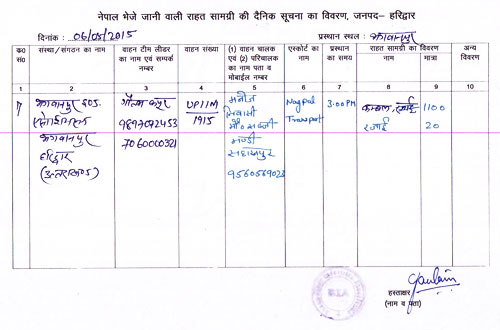 नेपाल भेजे जानी वाली राहत सामग्री की दैनिक सूचना का विवरण, जनपद- हरिद्वार
दिनांक : 06/05/2015
प्रस्थान स्थल : भगवानपुर
क्र0 सं0
संस्था/संगठन का नाम
वाहन टीम लीडर का नाम एवं सम्पर्क नम्बर
वाहन संख्या
(1) वाहन चालक एवं (2) परिचालक का नाम पता व मोबाईल नम्बर
एस्कोर्ट का नाम
प्रस्थान का समय
राहत सामग्री का विवरण
मात्रा
अन्य विवरण
1 2 3 4 5 6 7 8 9 10
भगवानपुर इण्ड०
एसोसिएशन
भगवानपुर
हरिद्वार
(उत्तराखण्ड)
गौतम कपूर
9897092453
7060000321
UP11M
1915
मनोज
निवासी
मण्डी
सहारनपुर
9560569023
Nagpal
Transport
3:00PM
कम्बल 1100
रजाई 20
हस्ताक्षर
(नाम व पता)